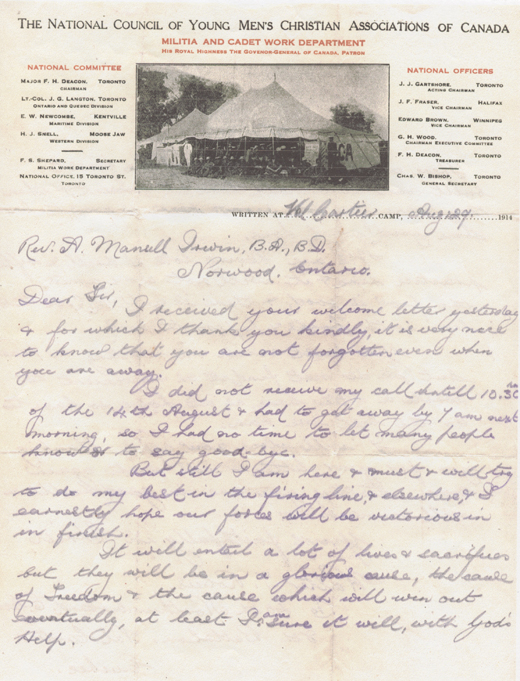 THE NATIONAL COUNCIL OF YOUNG MEN'S CHRISTIAN ASSOCIATIONS OF CANADA
MILITIA AND CADET WORK DEPARTMENT
HIS ROYAL HIGHNESS THE GOVENOR-GENERAL OF CANADA, PATRON
NATIONAL COMMITTEE
MAJOR F. H. DEACON, TORONTO
CHAIRMAN
LT.-COL. J. G. LANGTON, TORONTO
ONTARIO AND QUEBEC DIVISION
E. W. NEWCOMBE, KENTVILLE
MARITIME DIVISION
H. J. SMELL, MOOSE JAW
WESTERN DIVISION
F. S. SHEPARD, SECRETARY
MILITIA WORK DEPARTMENT
NATIONAL OFFICE, 15 TORONTO ST.
TORONTO
NATIONAL OFFICERS
J. J. GARTSHORE, TORONTO
ACTING CHAIRMAN
J. F. FRASER, HALIFAX
VICE CHAIRMAN
EDWARD BROWN, WINNIPEG
VICE CHAIRMAN
G. H. WOOD, TORONTO
CHAIRMAN EXECUTIVE COMMITTEE
F. H. DEACON, TORONTO
TREASURER
CHAS. W. BISHOP, TORONTO
GENERAL SECRETARY
WRITTEN AT Val Cartier CAMP, Aug 29 1914
Rev. A. Mansell Irwin, B.A., B.D.
Norwood, Ontario.
Dear Sir, I received your welcome letter yesterday
& for which I thank you kindly, it is very nice
to know that you are not forgotten even when
you are away.
I did not receive my call untill 10.30
of the 14th August & had to get away by 7 am next
morning, so I had no time to let many people
know or to say good-bye.
But still I am here & must & will try
to do my best in the firing line, & elsewhere, & I
earnestly hope our forces will be victorious in
in finish.
It will entail a lot of lives & sacrifices
but they will be in a glorious cause, the cause
of Freedom & the cause which will win out
eventually, at least I am sure it will, with God's
Help.